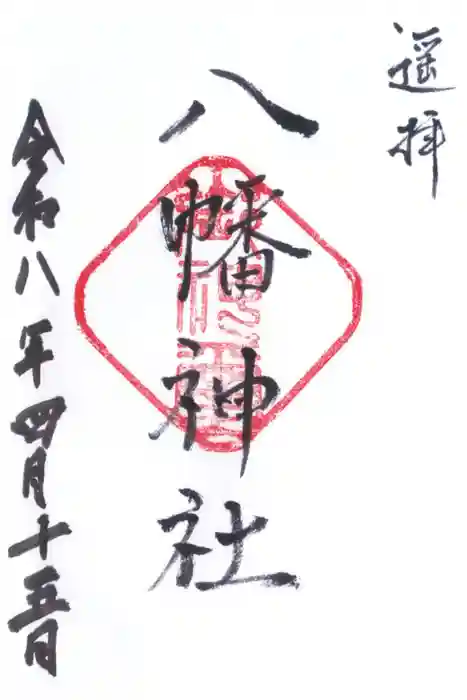 遥拝
八幡神社
令和八年四月十五日